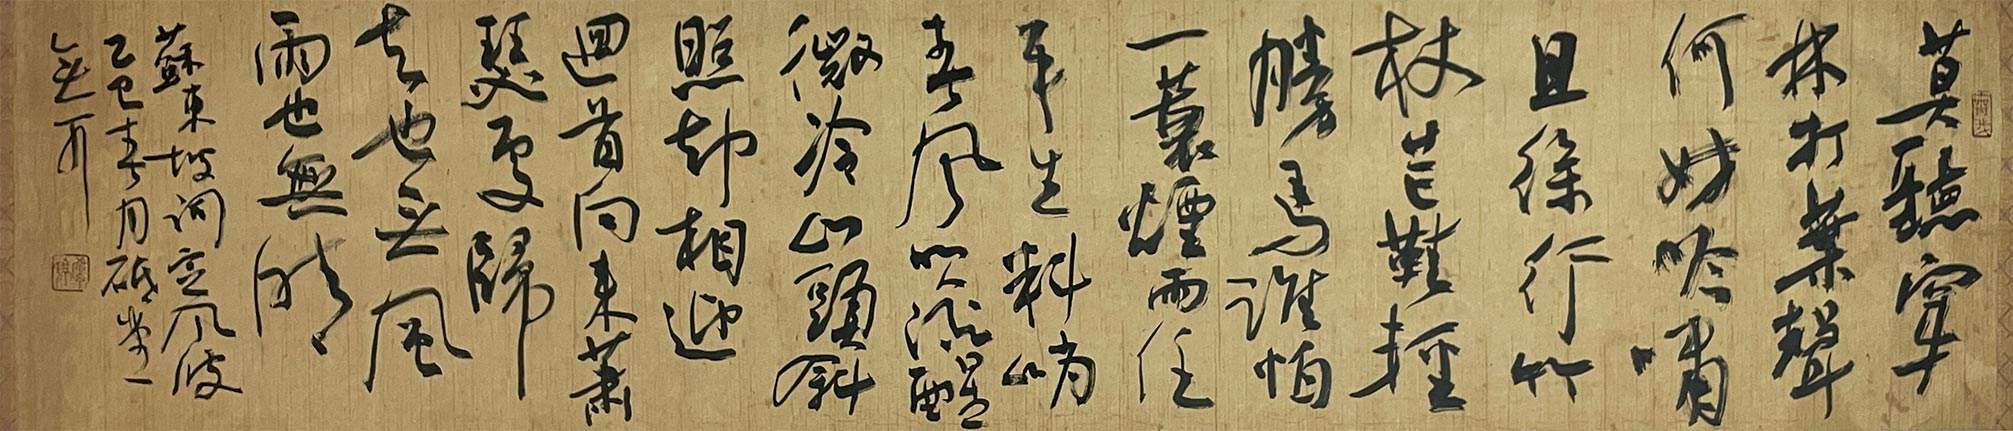 莫聽穿
林打葉聲
何妨吟嘯
且徐行竹
杖芒鞋輕
勝馬誰怕
一蓑煙雨任
平生料峭
春風吹酒醒
微冷山頭斜
照却相迎
迴首向來蕭
瑟處歸
去也無風
雨也無晴
蘇東坡詞定風波
乙巳春月